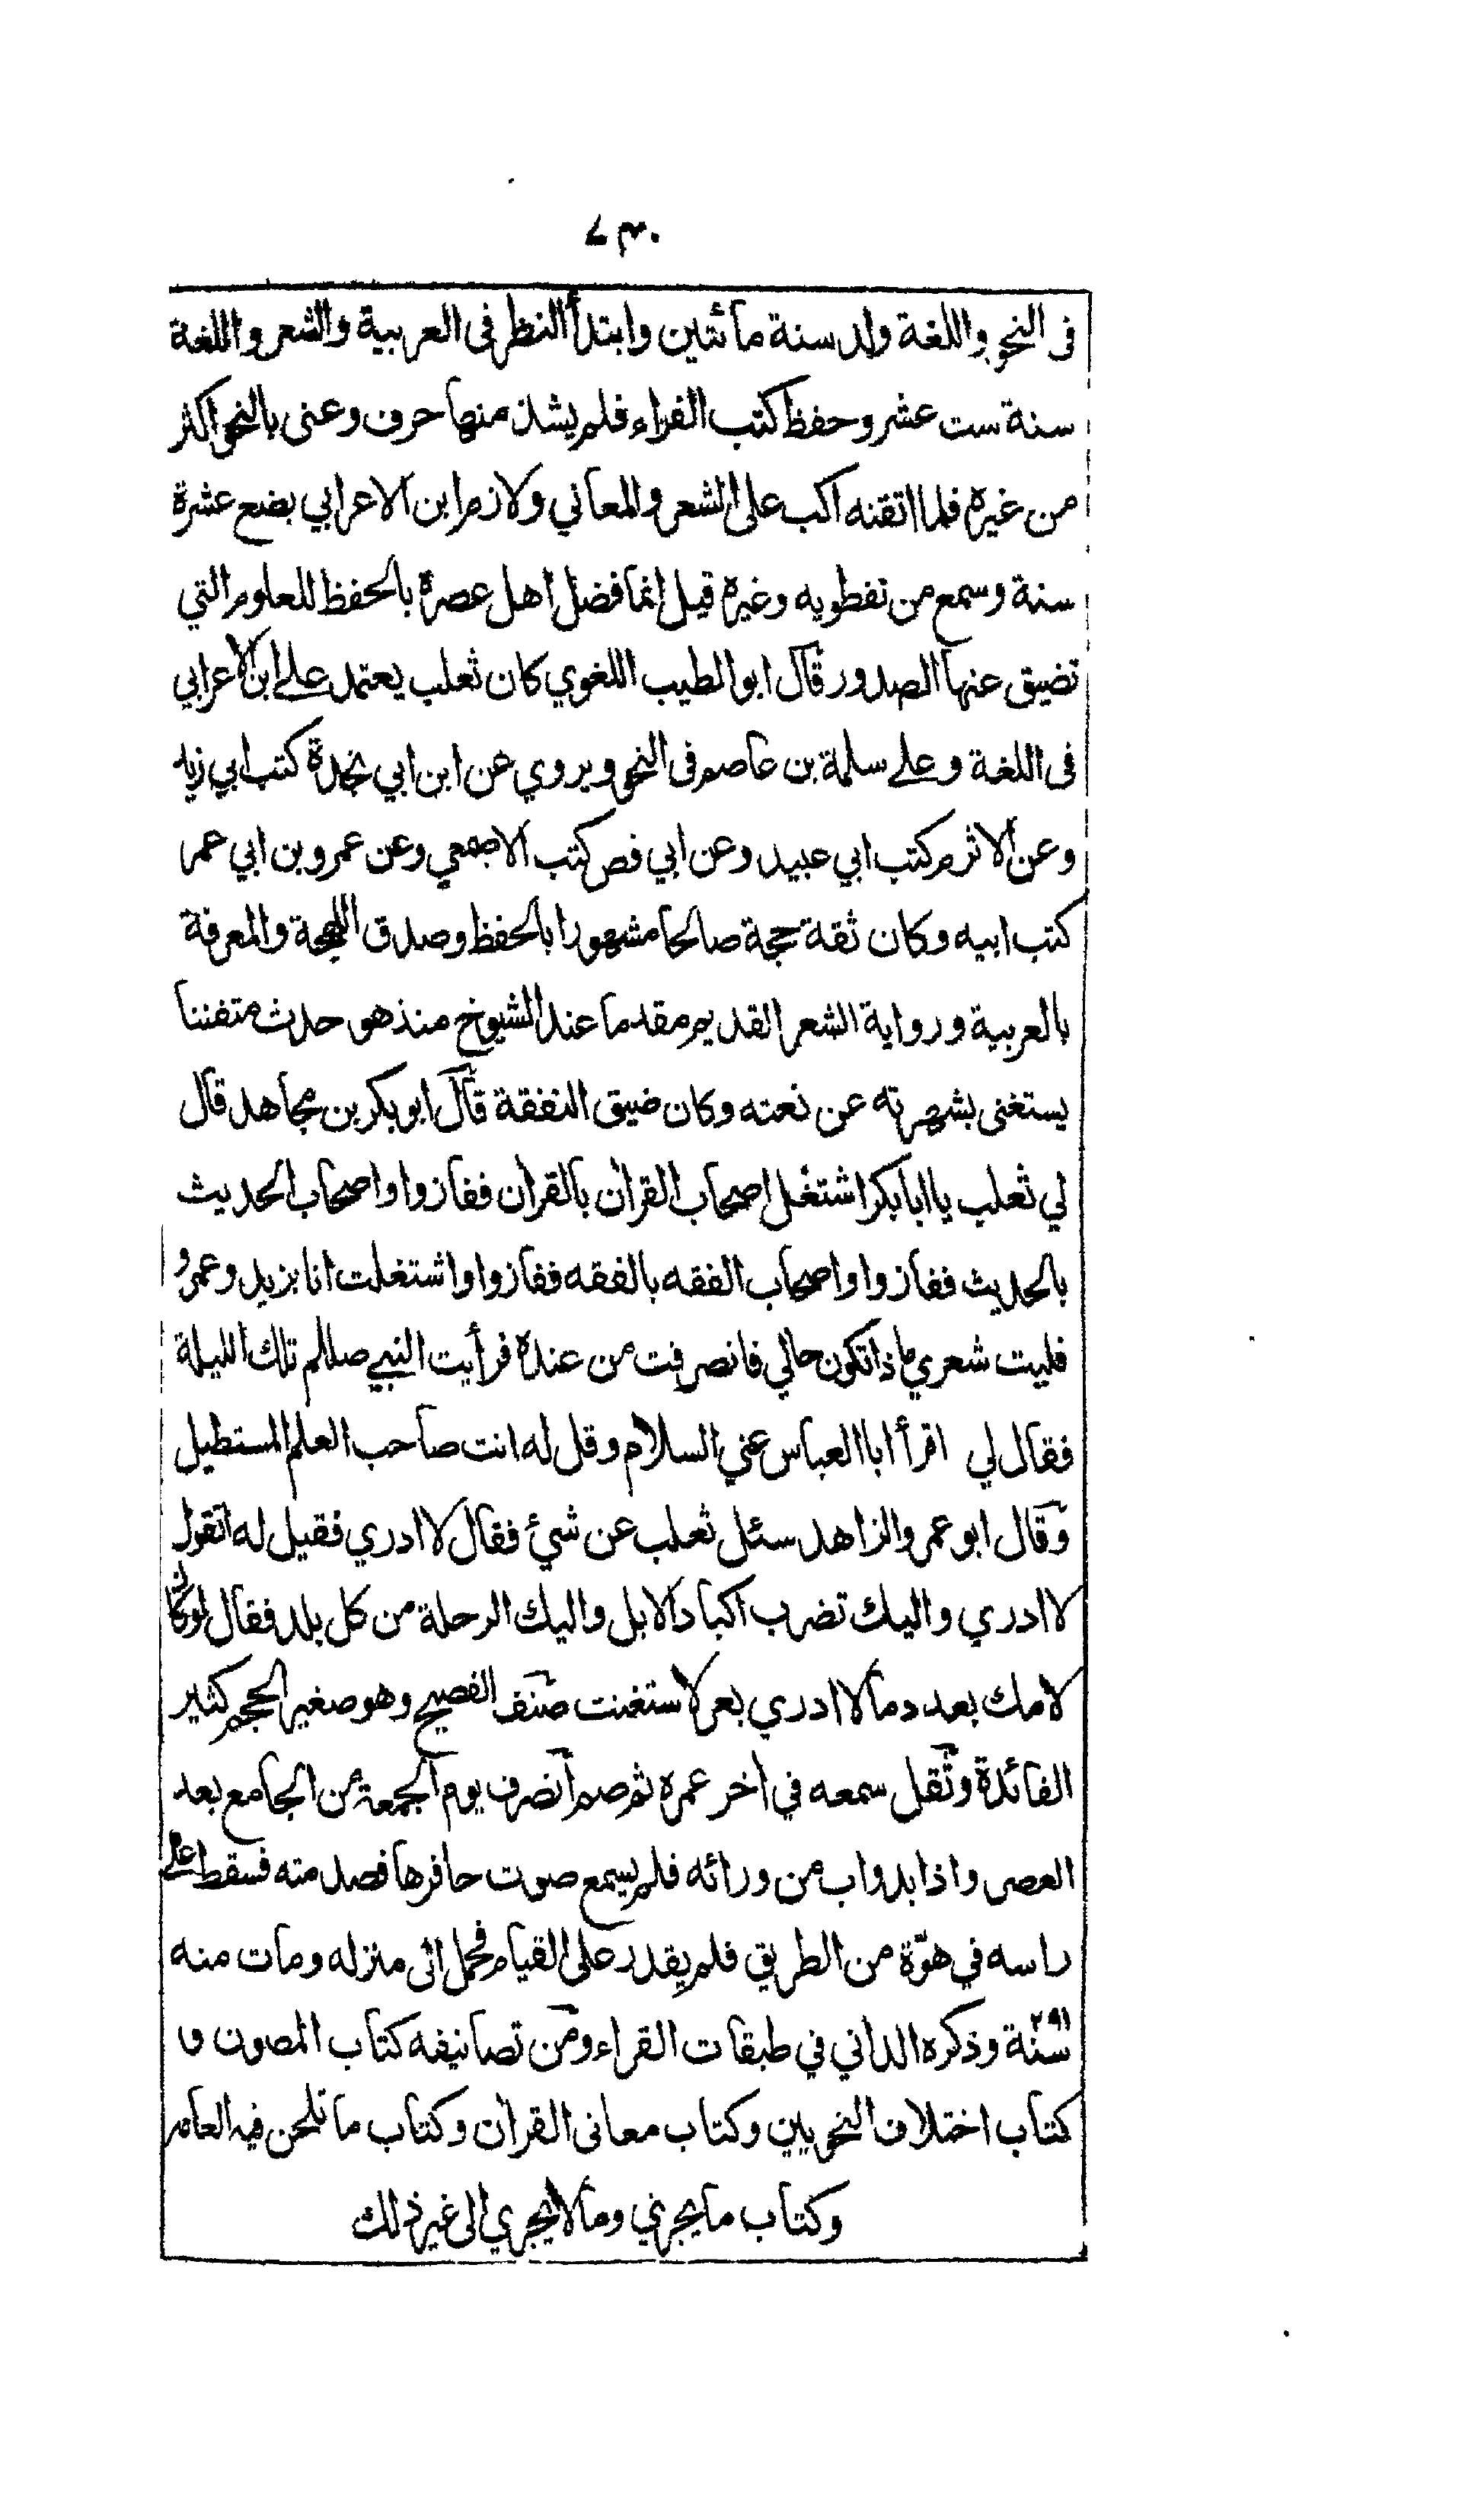 ٧٣٠
فى النحو واللغة ولد سنة مائتين وابتدأ النظر فى العربية والشعر واللغة
سنة ست عشر وحفظ كتب الفراء فلم يشذ منها حرف وعنى بالنحو اكثر
من غيره فلما اتقنه اكب على الشعر والمعاني ولازم ابن الاعرابي بضع عشرة
سنة وسمع من نفطويه وغيره قيل انما فضل اهل عصرة بالحفظ للعلوم التي
تضيق عنها الصدور قال ابو الطيب اللغوي كان ثعلب يعتمد على ابن الاعرابي
فى اللغة وعلى سلمة بن عاصم فى النحو ويروي عن ابن ابي نجدة كتب ابي زيد
وعن الاثرم كتب ابي عبيد وعن ابي نصر كتب الاصمعي وعن عمرو بن ابي عمر
كتب ابيه وكان ثقة حجة صالحا مشهورا بالحفظ وصدق اللهجة والمعرفة
بالعربية ورواية الشعر القديم مقدما عند الشيوخ منذ هو حدث متفننا
يستغنى بشهرته عن نعته وكان ضيق النفقة قال ابو بكر بن مجاهد قال
لي ثعلب يا ابا بكر اشتغل اصحاب القرأن بالقرأن ففازوا واصحاب الحديث
بالحديث ففازوا واصحاب الفقه بالفقه ففازوا واشتغلت انا بزيد وعمرو
فليت شعري ما ذا تكون حالي فانصرفت من عنده فرأيت النبي صللم تلك الليلة
فقال لي اقرأ ابا العباس عني السلام وقل له انت صاحب العلم المستطيل
وقال ابو عمر والزاهد سئل ثعلب عن شيئ فقال لا ادري فقيل له اتقول
لا ادري واليك تضرب اكباد الابل واليك الرحلة من كل بلد فقال لو كان
لامك بعدد ما لا ادري بعر لاستغنت صنف الفصيح وهو صغير الحجم كثير
الفائدة وثقل سمعه في أخر عمره ثم صم انصرف يوم الجمعة من الجامع بعد
العصر واذا بدواب من ورائه فلم يسمع صوت حافرها فصدمته فسقط على
راسه في هوّة من الطريق فلم يقدر على القيام فحمل الى منزله ومات منه
سنة ٢٩١ وذكره الداني في طبقات القراء ومن تصانيفه كتاب المصون و
كتاب اختلاف النحويين وكتاب معانى القرأن وكتاب ما تلحن فيه العامه
وكتاب ما يجزي وما لا يجري الى غير ذلك